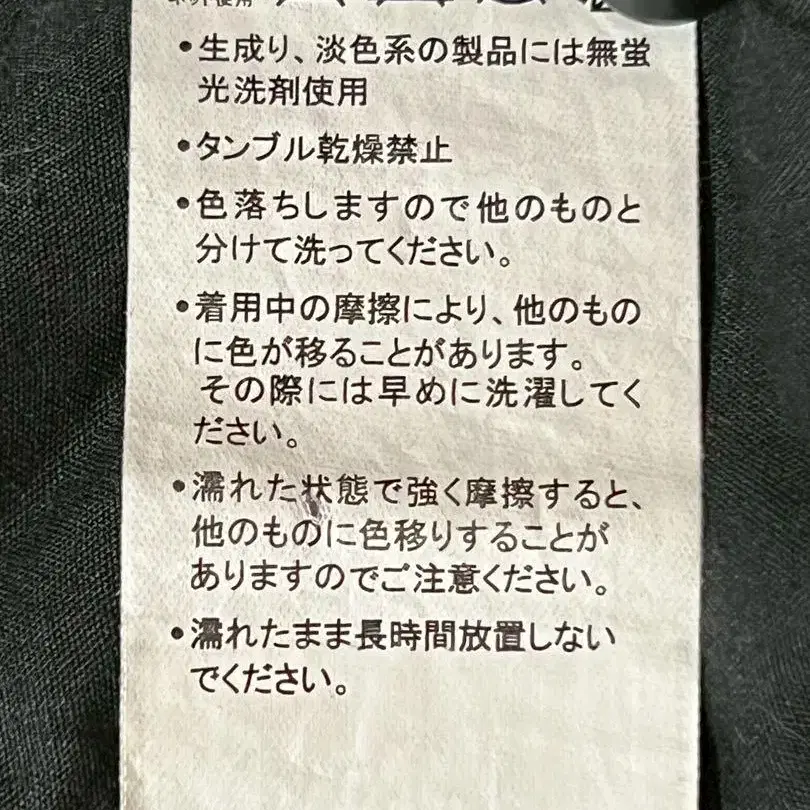 ネット使用
•生成り、淡色系の製品には無蛍
光洗剤使用
•タンブル乾燥禁止
•色落ちしますので他のものと
分けて洗ってください。
•着用中の摩擦により、他のもの
に色が移ることがあります。
その際には早めに洗濯してく
ださい。
•濡れた状態で強く摩擦すると、
他のものに色移りすることが
ありますのでご注意ください。
•濡れたまま長時間放置しない
でください。